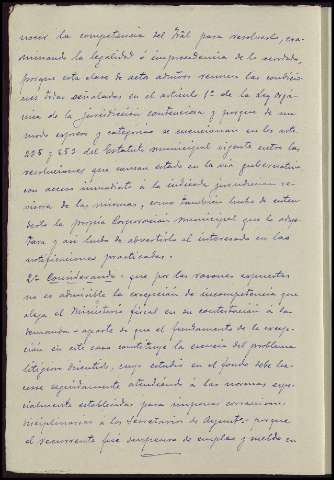 nocer la competencia del Tral para resolverlo, exa-
minando la legalidad ó improcedencia de lo acordado,
porque esta clase de actos admvos reunen las condicio-
nes todas señaladas en el artículo 1º de la Ley orgá-
nica de la jurisdicción contenciosa y porque de un
modo expreso y categórico se encuentran en los arts
225 y 253 del Estatuto municipal vigente entre las
resoluciones que causan estado en la vía gubernativa
con acceso inmediato á la indicada jurisdicción re-
visora de las mismas, como también hubo de enten-
derlo la propia Corporación municipal que lo adop-
tara y así hubo de advertirlo al interesado en las
notificaciones practicadas.
2º Considerando - que por las razones expuestas
no es admisible la excepción de incompetencia que
alega el Ministerio fiscal en su contestación á la
demanda - aparte de que el fundamento de la excep-
ción en este caso constituye la esencia del problema
litigioso discutido, cuyo estudio en el fondo debe ha-
cerse seguidamente atendiendo á las normas espe-
cialmente establecidas para imponer correcciones
disciplinarias á los Secretarios de Ayunt.: porque
el recurrente fué suspenso de empleo y sueldo en